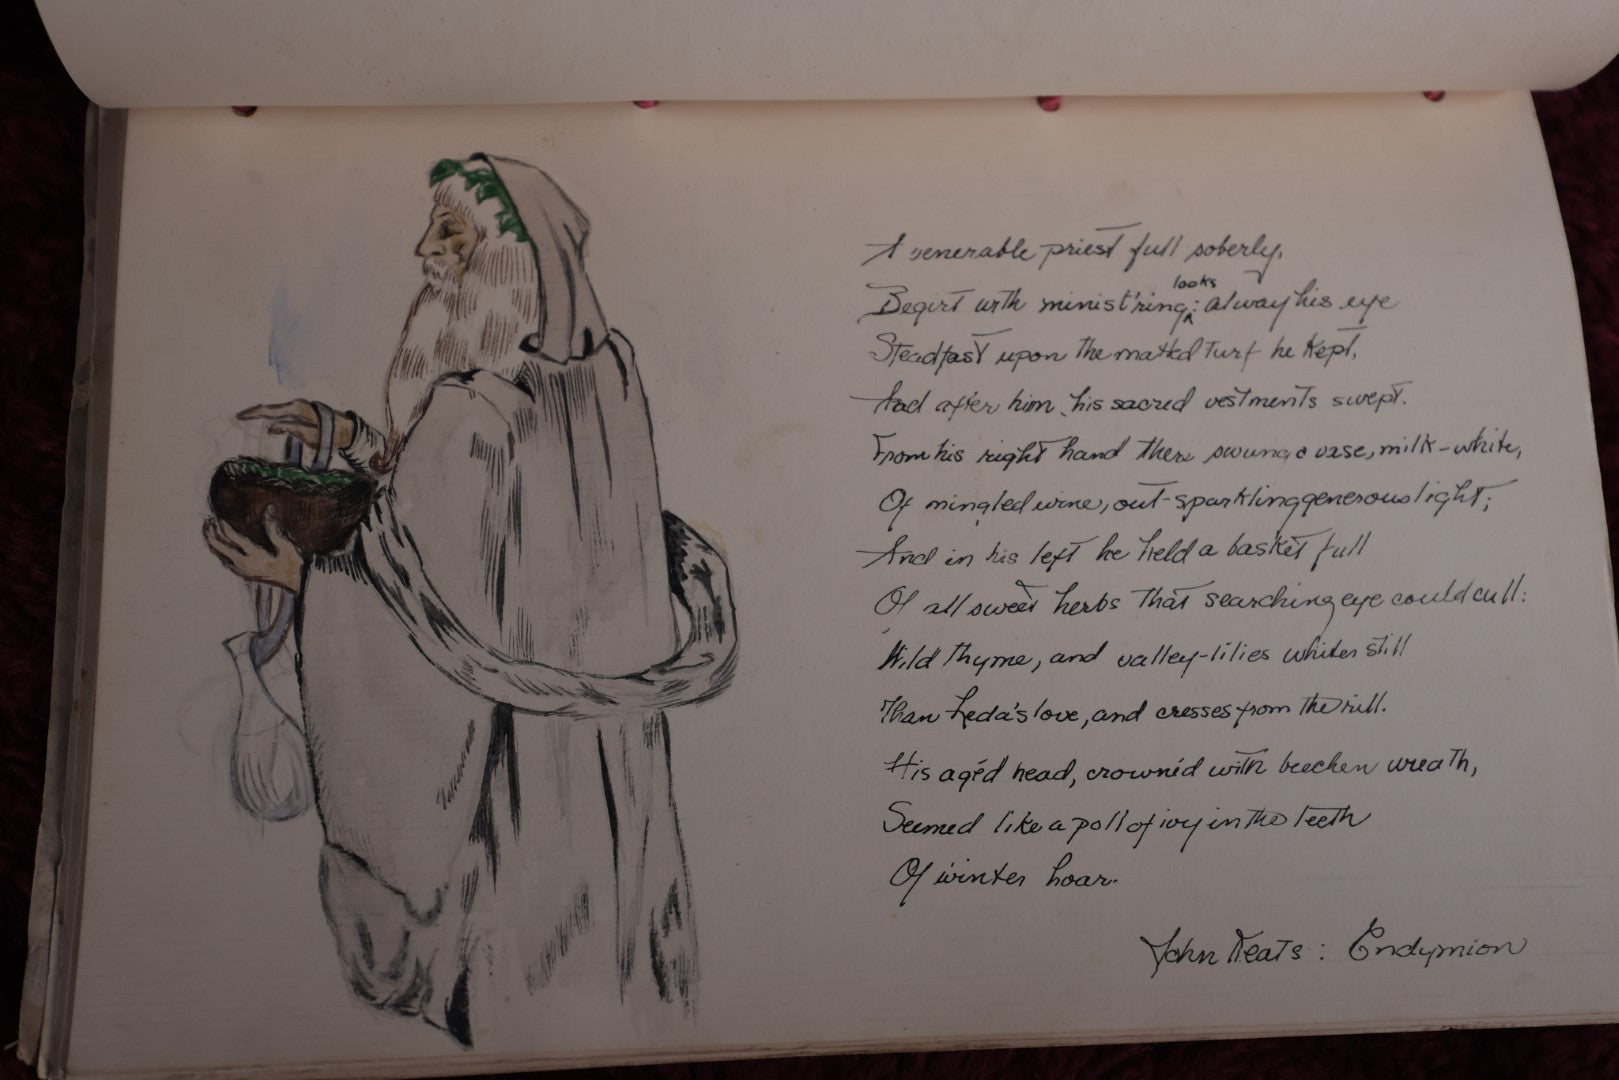 A venerable priest full soberly,
Begirt with minist'ring looks: alway his eye
Steadfast upon the matted turf he kept,
And after him his sacred vestments swept.
From his right hand there swung a vase, milk-white,
Of mingled wine, out-sparkling generous light;
And in his left he held a basket full
Of all sweet herbs that searching eye could cull:
Wild thyme, and valley-lilies whiter still
Than Leda's love, and cresses from the rill.
His agéd head, crownéd with beechen wreath,
Seemed like a poll of ivy in the teeth
Of winter hoar.
John Keats: Endymion